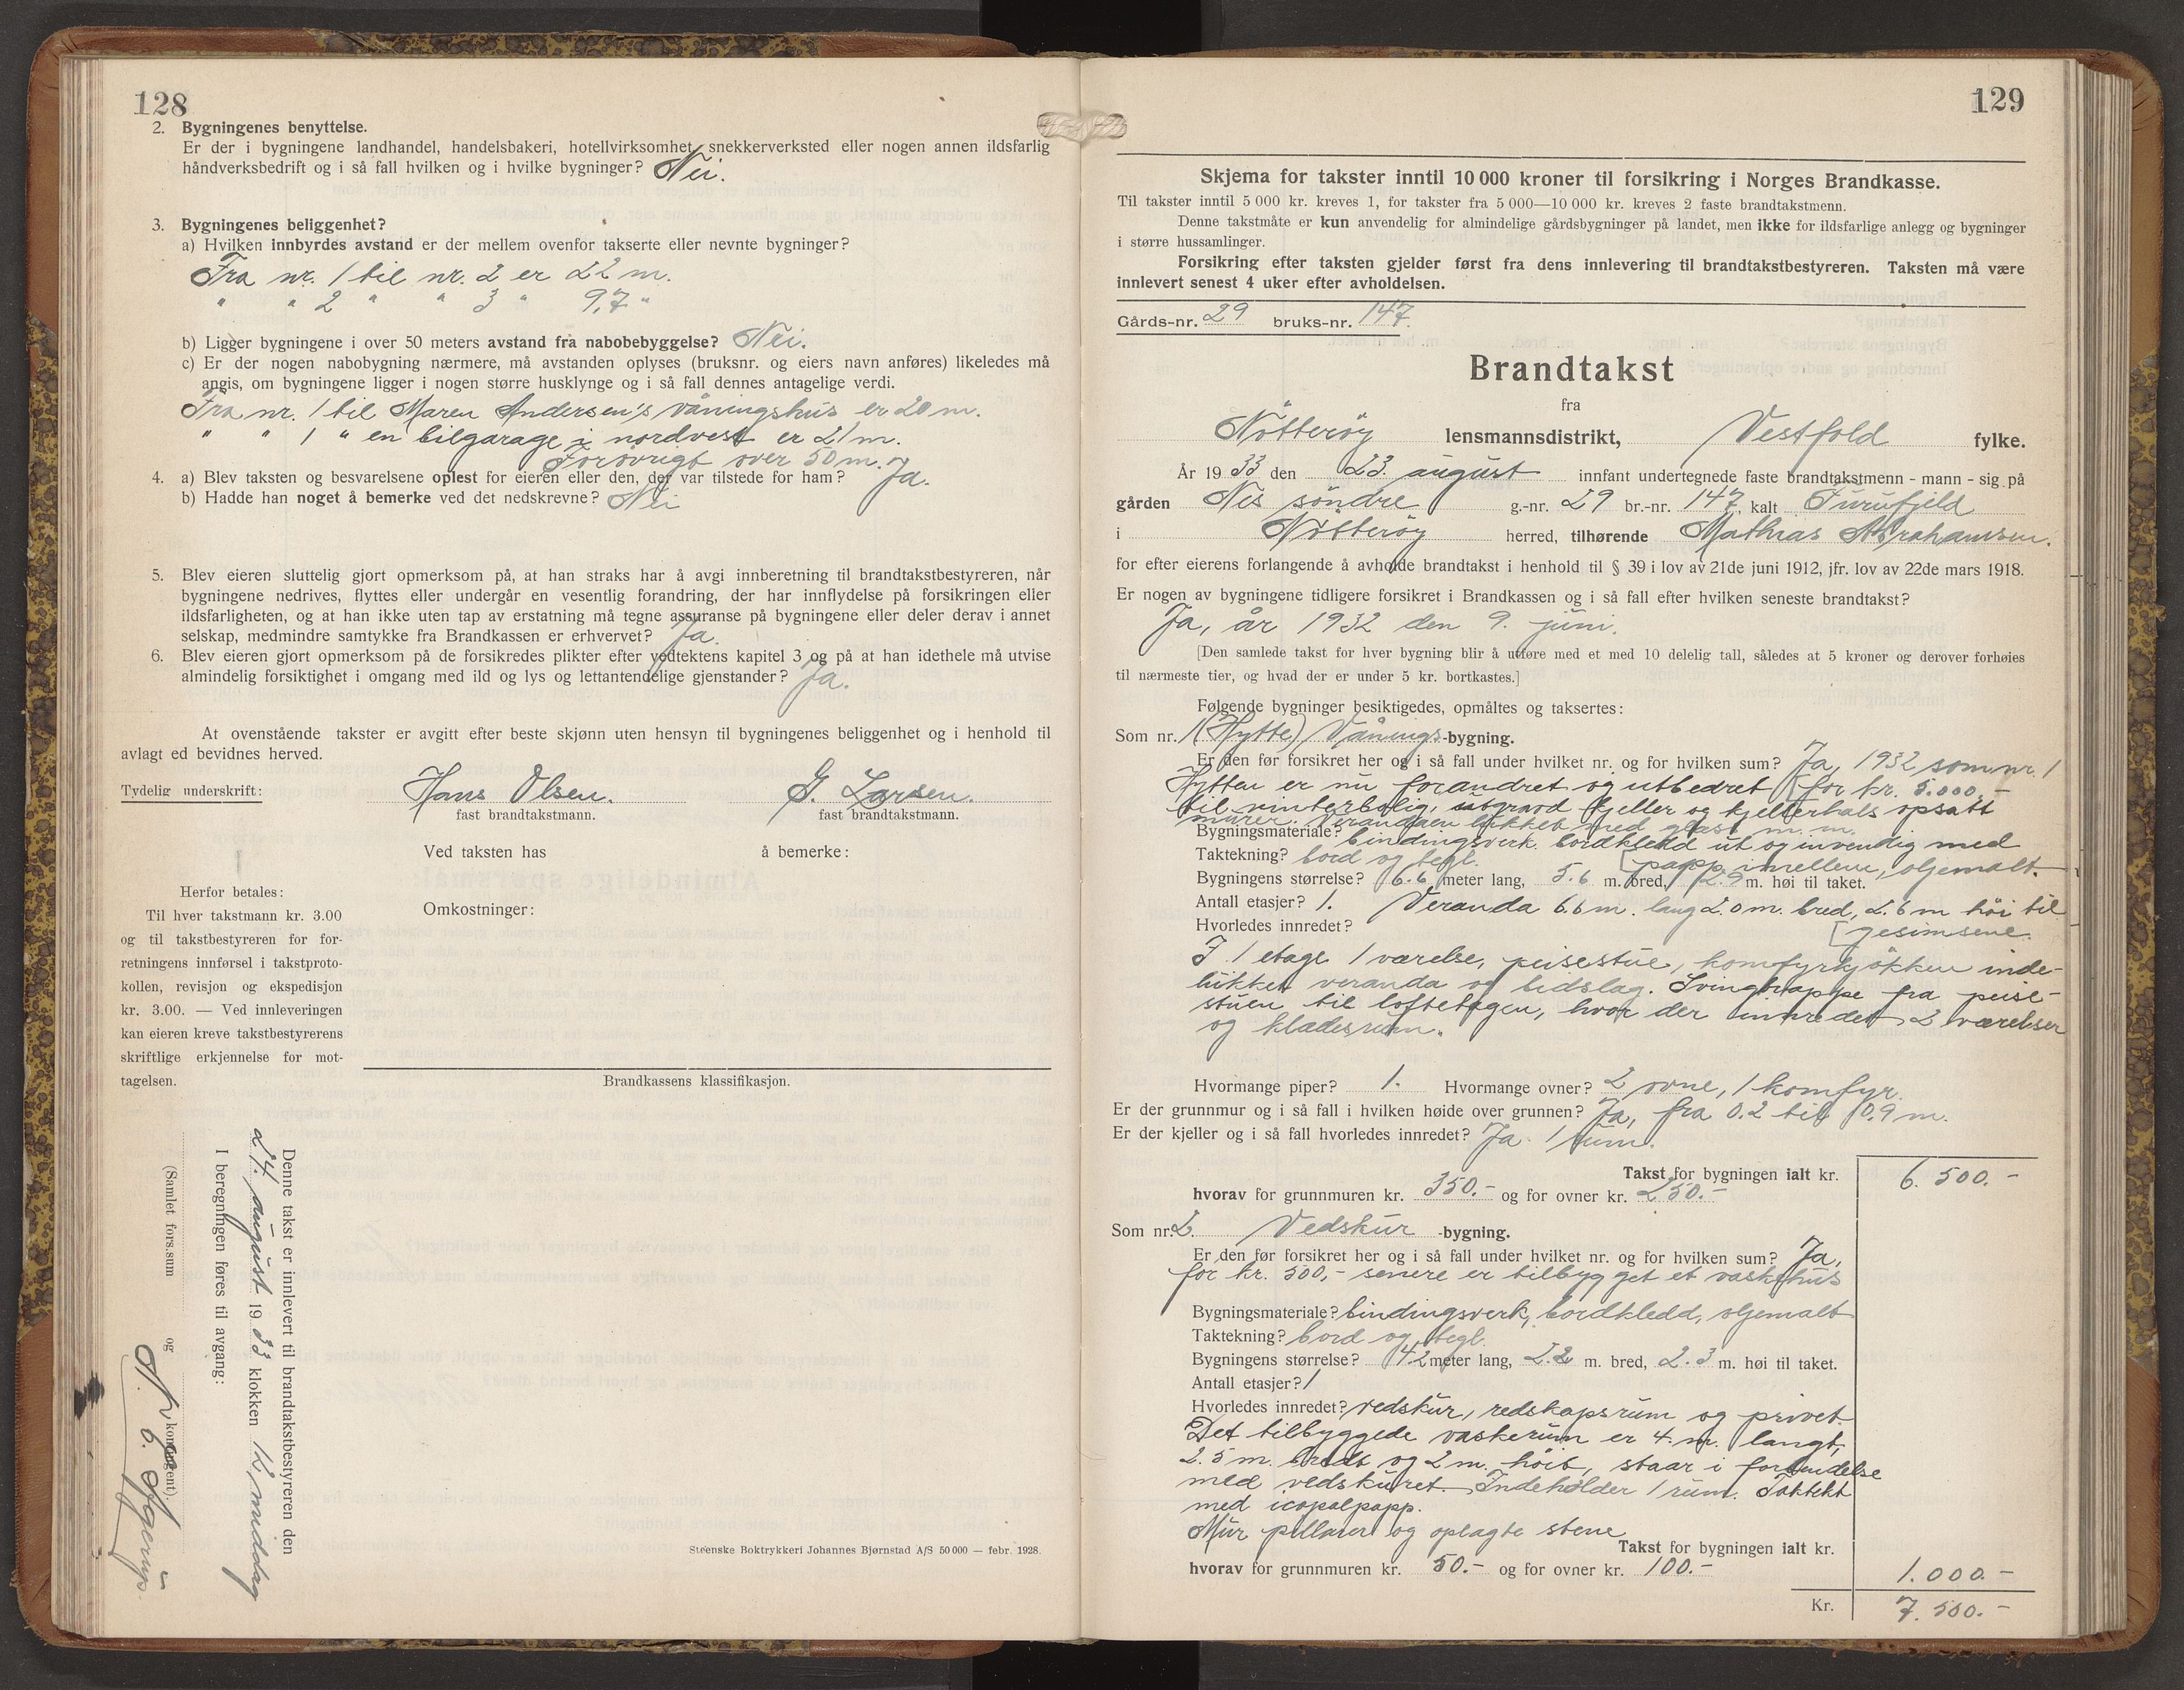 128
2. Bygningenes benyttelse.
Er der i bygningene landhandel, handelsbakeri, hotellvirksomhet, snekkerverksted eller nogen annen ildsfarlig
håndverksbedrift og i så fall hvilken og i hvilke bygninger? Nei.
3. Bygningenes beliggenhet?
a) Hvilken innbyrdes avstand er der mellem ovenfor takserte eller nevnte bygninger?
Fra nr. 1 til nr. 2 er 22 m.
" " 2 " " 3 " 9,7 "
b) Ligger bygningene i over 50 meters avstand fra nabobebyggelse? Nei.
c) Er der nogen nabobygning nærmere, må avstanden oplyses (bruksnr. og eiers navn anføres) likeledes må
angis, om bygningene ligger i nogen større husklynge og i så fall dennes antagelige verdi.
Fra nr. 1 til Maren Andersen's våningshus er 20 m.
" " 1 " en bilgarage i nordvest er 21 m.
Forøvrigt over 50 m.
4. a) Blev taksten og besvarelsene oplest for eieren eller den, der var tilstede for ham? Ja.
b) Hadde han noget å bemerke ved det nedskrevne? Nei
5. Blev eieren sluttelig gjort opmerksom på, at han straks har å avgi innberetning til brandtakstbestyreren, når
bygningene nedrives, flyttes eller undergår en vesentlig forandring, der har innflydelse på forsikringen eller
ildsfarligheten, og at han ikke uten tap av erstatning må tegne assuranse på bygningene eller deler derav i annet
selskap, medmindre samtykke fra Brandkassen er erhvervet? Ja.
6. Blev eieren gjort opmerksom på de forsikredes plikter efter vedtektens kapitel 3 og på at han idethele må utvise
almindelig forsiktighet i omgang med ild og lys og lettantendelige gjenstander? Ja.
At ovenstående takster er avgitt efter beste skjønn uten hensyn til bygningenes beliggenhet og i henhold til
avlagt ed bevidnes herved.
Tydelig underskrift: Hans Olsen. G. Larsen.
fast brandtakstmann. fast brandtakstmann.
Ved taksten has å bemerke:
Omkostninger:
Herfor betales:
Til hver takstmann kr. 3.00
og til takstbestyreren for for-
retningens innførsel i takstproto-
kollen, revisjon og ekspedisjon
kr. 3.00. — Ved innleveringen
kan eieren kreve takstbestyrerens
skriftlige erkjennelse for mot-
tagelsen.
Brandkassens klassifikasjon.
Denne takst er innlevert til brandtakstbestyreren den
24. august 1933 klokken 12 middag
I beregningen føres til avgang:
(Samlet fors.sum og kontingent).
Steenske Boktrykkeri Johannes Bjørnstad A/S 50 000 — febr. 1928.
129
Skjema for takster inntil 10 000 kroner til forsikring i Norges Brandkasse.
Til takster inntil 5 000 kr. kreves 1, for takster fra 5 000—10 000 kr. kreves 2 faste brandtakstmenn.
Denne takstmåte er kun anvendelig for almindelige gårdsbygninger på landet, men ikke for ildsfarlige anlegg og bygninger
i større hussamlinger.
Forsikring efter taksten gjelder først fra dens innlevering til brandtakstbestyreren. Taksten må være
innlevert senest 4 uker efter avholdelsen.
Gårds-nr. 29 bruks-nr. 147.
Brandtakst
fra
Nötteröy lensmannsdistrikt, Vestfold fylke.
År 1933 den 23. august innfant undertegnede faste brandtakstmenn - mann - sig på
gården Nes söndre g.-nr. 29 br.-nr. 147, kalt Furufjeld
i Nötteröy herred, tilhørende Mathias Abrahamsen.
for efter eierens forlangende å avholde brandtakst i henhold til § 39 i lov av 21de juni 1912, jfr. lov av 22de mars 1918.
Er nogen av bygningene tidligere forsikret i Brandkassen og i så fall efter hvilken seneste brandtakst?
Ja, år 1932 den 9. juni.
[Den samlede takst for hver bygning blir å utføre med et med 10 delelig tall, således at 5 kroner og derover forhøies
til nærmeste tier, og hvad der er under 5 kr. bortkastes.]
Følgende bygninger besiktigedes, opmåltes og taksertes:
Som nr. 1 (Hytte) Vånings-bygning.
Er den før forsikret her og i så fall under hvilket nr. og for hvilken sum? Ja, 1932 som nr. 1
Hytten er nu forandret og utbedret [for kr. 5.000.-
til vinterbolig, utgravd kjeller og kjellerhals opsatt
murer. Verandaen lukket med glass m. m.
Bygningsmateriale? bindingsverk. bordkledd ut og invendig med
Taktekning? bord og tegl. [papp imellem, oljemalt.
Bygningens størrelse? 6.6 meter lang, 5.6 m. bred, 2.9 m. høi til taket.
Antall etasjer? 1. Veranda 6.6 m. lang 2.0 m. bred, 2.6 m høi til
Hvorledes innredet? [gesimsene.
I 1 etage 1 værelse, peisestue, komfyrkjökken inde-
lukket veranda og bedslag. Svingtrappe fra peise-
stuen til loftetagen, hvor der innredet 2 værelser
og kladesrum.
Hvormange piper? 1. Hvormange ovner? 2 ovne, 1 komfyr.
Er der grunnmur og i så fall i hvilken høide over grunnen? Ja, fra 0.2 til 0.9 m.
Er der kjeller og i så fall hvorledes innredet? Ja. 1 rum.
Takst for bygningen ialt kr. 6.500.-
hvorav for grunnmuren kr. 350.- og for ovner kr. 250.-
Som nr. 2. Vedskur -bygning.
Er den før forsikret her og i så fall under hvilket nr. og for hvilken sum? Ja,
for kr. 500,- senere er tilbygget et vaskehus
Bygningsmateriale? bindingsverk, bordkledd, oljemalt
Taktekning? bord og tegl.
Bygningens størrelse? 4.2 meter lang, 2.2 m. bred, 2.3 m. høi til taket.
Antall etasjer? 1
Hvorledes innredet? vedskur, redskapsrum og privet.
Det tilbyggede vaskerum er 4. m. langt,
2.5 m. bredt og 2 m. höit, staar i forbindelse
med vedskuret. Indeholder 1 rum. Taktekt
med icopalpapp.
Mur pillarer og oplagte stene
Takst for bygningen ialt kr.
hvorav for grunnmuren kr. 50.- og for ovner kr. 100.- 1.000.-
Kr. 7.500.-